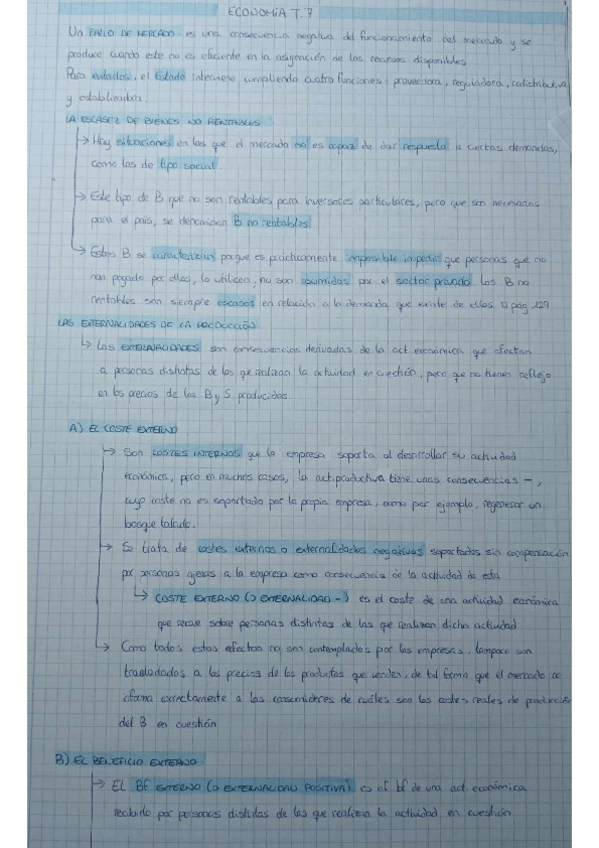 ECONOMÍA T.7
Un FALLO DE MERCADO es una consecuencia negativa del funcionamiento del mercado y se
produce cuando este no es eficiente en la asignación de los recursos disponibles.
Para evitarlos, el Estado interviene cumpliendo cuatro funciones: proveedora, reguladora, redistributiva
y estabilizadora.
LA ESCASEZ DE BIENES NO RENTABLES
→ Hay situaciones en las que el mercado no es capaz de dar respuesta a ciertas demandas,
como las de tipo social.
→ Este tipo de B que no son rentables para inversores particulares, pero que son necesarios
para el país, se denominan B no rentables
→ Estos B se caracterizan porque es prácticamente imposible impedir que personas que no
han pagado por ellos, lo utilicen, no son asumidos por el sector privado. Los B no
rentables son siempre escasos en relación a la demanda que existe de ellos pág 129
LAS EXTERNALIDADES DE LA PRODUCCIÓN
↳ Las EXTERNALIDADES son consecuencias derivadas de la act económica que afectan
a personas distintas de las que realizan la actividad en cuestión, pero que no tienen reflejo
en los precios de los B y S producidos.
A) EL COSTE EXTERNO
→ Son COSTES INTERNOS que la empresa soporta al desarrollar su actividad
económica, pero en muchos casos, la act.productiva tiene unas consecuencias -,
cuyo coste no es soportado por la propia empresa, como por ejemplo, regenerar un
bosque talado.
→ Se trata de costes externos o externalidades negativas soportados sin compensación
por personas ajenas a la empresa como consecuencia de la actividad de esta
↳ COSTE EXTERNO (O EXTERNALIDAD -) es el coste de una actividad económica
que recae sobre personas distintas de las que realizan dicha actividad
↳ Como todos estos efectos no son contemplados por las empresas, tampoco son
trasladados a los precios de los productos que venden, de tal forma que el mercado no
informa correctamente a los consumidores de cuáles son los costes reales de producción
del B en cuestión
B) EL BENEFICIO EXTERNO
→ EL BF EXTERNO (O EXTERNALIDAD POSITIVA) es el bf de una act. económica
recibido por personas distintas de las que realizan la actividad en cuestión